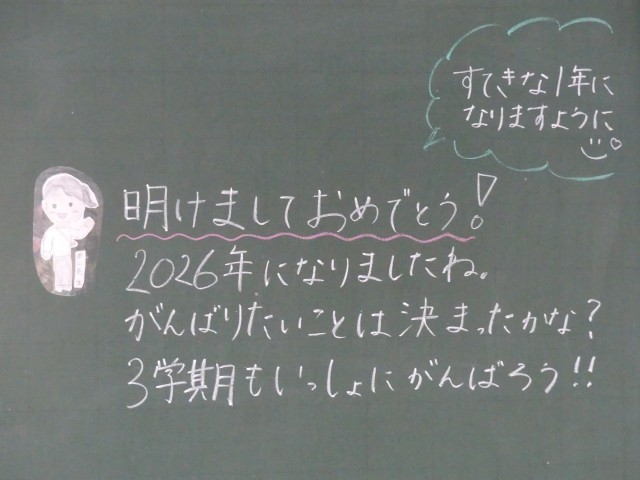 すてきな1年に
なりますように
明けましておめでとう!
2026年になりましたね。
がんばりたいことは決まったかな?
3学期もいっしょにがんばろう!!